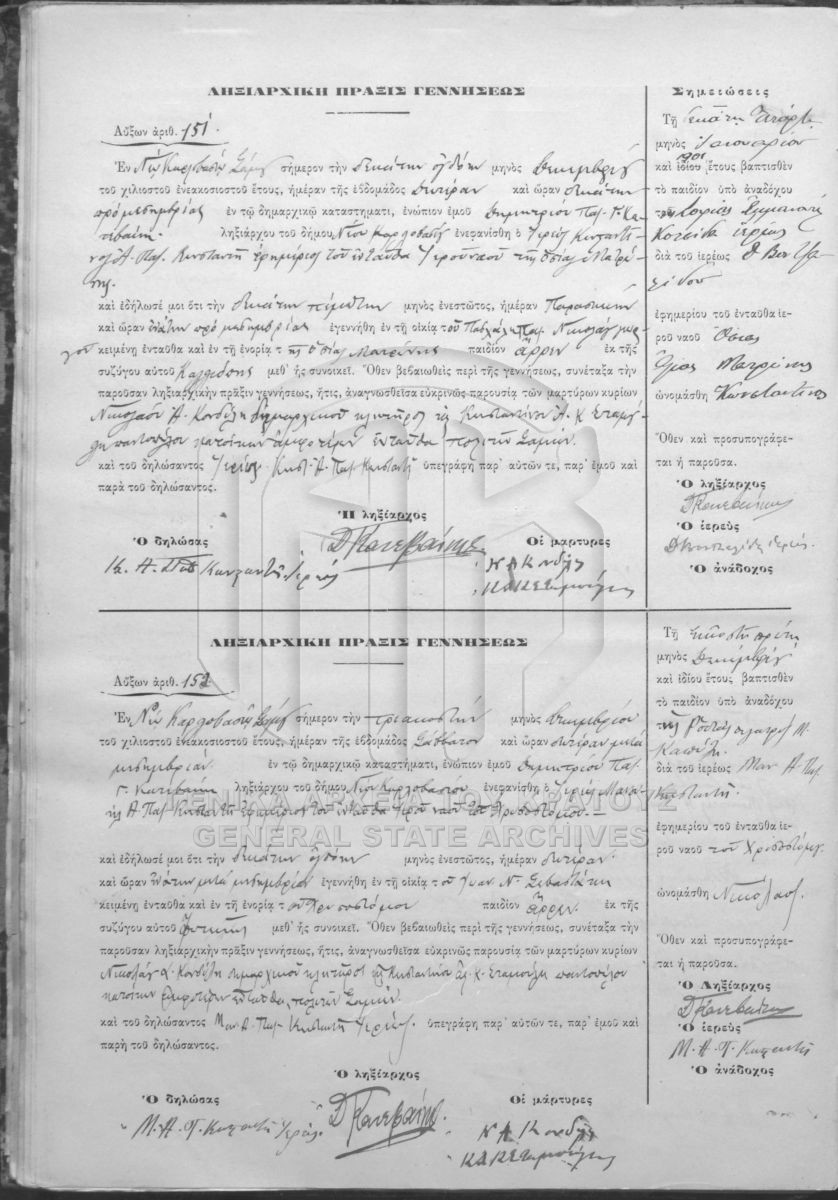 ΛΗΞΙΑΡΧΙΚΗ ΠΡΑΞΙΣ ΓΕΝΝΗΣΕΩΣ
Αὔξων ἀριθ. 151
Ἐν Νέῳ Καρλοβασίῳ Σάμου σήμερον τὴν δεκάτην ὀγδόην μηνὸς Δεκεμβρίου
τοῦ χιλιοστοῦ ἐνεακοσιοστοῦ ἔτους, ἡμέραν τῆς ἑβδομάδος Δευτέραν καὶ ὥραν δεκάτην
πρὸ μεσημβρίας ἐν τῷ δημαρχικῷ καταστήματι, ἐνώπιον ἐμοῦ Δημητρίου Παπ. Γ. Κα-
τεβαίνη ληξιάρχου τοῦ δήμου Νέου Καρλοβασίου ἐνεφανίσθη ὁ Ἱερεὺς Κωνσταντῖ-
νος Α. Παπ. Κωνσταντῆ ἐφημέριος τοῦ ἐνταῦθα Ἱεροῦ ναοῦ τῆς Ὁσίας Ματρώ-
νης.
καὶ ἐδήλωσέ μοι ὅτι τὴν δεκάτην πέμπτην μηνὸς ἐνεστῶτος, ἡμέραν Παρασκευὴν
καὶ ὥραν ἐνάτην πρὸ μεσημβρίας ἐγεννήθη ἐν τῇ οἰκίᾳ τοῦ Παπ. Νικολάου
κειμένῃ ἐνταῦθα καὶ ἐν τῇ ἐνορίᾳ τῆς Ὁσίας Ματρώνης παιδίον ἄρρεν ἐκ τῆς
συζύγου αὐτοῦ μεθ' ἧς συνοικεῖ. Ὅθεν βεβαιωθεὶς περὶ τῆς γεννήσεως, συνέταξα τὴν
παροῦσαν ληξιαρχικὴν πρᾶξιν γεννήσεως, ἥτις, ἀναγνωσθεῖσα εὐκρινῶς παρουσίᾳ τῶν μαρτύρων κυρίων
Νικολάου Α. Κονδύλη δημαρχικοῦ κλητῆρος καὶ Κωνσταντίνου Α. Κ. Σταμού-
λη παντοπώλου κατοίκων ἀμφοτέρων ἐνταῦθα πολιτῶν Σαμίων.
καὶ τοῦ δηλώσαντος Ἱερέως Κωνστ. Α. Παπ. Κωνσταντῆ ὑπεγράφη παρ' αὐτῶν τε, παρ' ἐμοῦ καὶ
παρὰ τοῦ δηλώσαντος.
Ἡ ληξίαρχος
Ὁ δηλώσας
Δ Κατεβαίνης
Οἱ μάρτυρες
Κ. Α. Παπ Κωνσταντῆ Ἱερεύς
Ν Α Κονδύλη
Κ Α Κ Σταμούλης
Σημειώσεις
Τῇ δεκάτῃ τετάρτῃ
μηνὸς Ἰανουαρίου
1901
καὶ ἰδίου ἔτους βαπτισθὲν
τὸ παιδίον ὑπὸ ἀναδόχου
τῆς Σοφίας Ἐμμανουὴλ
διὰ τοῦ ἱερέως Δ
ἐφημερίου τοῦ ἐνταῦθα ἱε-
ροῦ ναοῦ Ὁσίας
Ματρώνης
ὠνομάσθη Κωνσταντῖνος
Ὅθεν καὶ προσυπογράφε-
ται ἡ παροῦσα.
Ὁ ληξίαρχος
Δ Κατεβαίνης
Ὁ ἱερεὺς
Ὁ ἀνάδοχος
ΛΗΞΙΑΡΧΙΚΗ ΠΡΑΞΙΣ ΓΕΝΝΗΣΕΩΣ
Αὔξων ἀριθ. 152
Ἐν Νέῳ Καρλοβασίῳ Σάμου σήμερον τὴν τριακοστὴν μηνὸς Δεκεμβρίου
τοῦ χιλιοστοῦ ἐνεακοσιοστοῦ ἔτους, ἡμέραν τῆς ἑβδομάδος Σάββατον καὶ ὥραν δευτέραν μετὰ
μεσημβρίαν ἐν τῷ δημαρχικῷ καταστήματι, ἐνώπιον ἐμοῦ Δημητρίου Παπ.
Γ. Κατεβαίνη ληξιάρχου τοῦ δήμου Νέου Καρλοβασίου ἐνεφανίσθη ὁ Ἱερεὺς Μανώ-
λης Α Παπ Κωνσταντῆ ἐφημέριος τοῦ ἐνταῦθα Ἱεροῦ ναοῦ τοῦ Χρυσοστόμου.—
καὶ ἐδήλωσέ μοι ὅτι τὴν δεκάτην ὀγδόην μηνὸς ἐνεστῶτος, ἡμέραν Δευτέραν
καὶ ὥραν ἐνάτην μετὰ μεσημβρίαν ἐγεννήθη ἐν τῇ οἰκίᾳ τοῦ Ἰωάν. Ν. Σεβαστάκη
κειμένῃ ἐνταῦθα καὶ ἐν τῇ ἐνορίᾳ τοῦ Χρυσοστόμου παιδίον ἄρρεν ἐκ τῆς
συζύγου αὐτοῦ μεθ' ἧς συνοικεῖ. Ὅθεν βεβαιωθεὶς περὶ τῆς γεννήσεως, συνέταξα τὴν
παροῦσαν ληξιαρχικὴν πρᾶξιν γεννήσεως, ἥτις, ἀναγνωσθεῖσα εὐκρινῶς παρουσίᾳ τῶν μαρτύρων κυρίων
Νικολάου Α. Κονδύλη δημαρχικοῦ κλητῆρος καὶ Κωνσταντίνου Α. Κ. Σταμούλη παντοπώλου
κατοίκων ἀμφοτέρων ἐνταῦθα, πολιτῶν Σαμίων.
καὶ τοῦ δηλώσαντος Μαν. Α. Παπ. Κωνσταντῆ Ἱερέως. ὑπεγράφη παρ' αὐτῶν τε, παρ' ἐμοῦ καὶ
παρὴ τοῦ δηλώσαντος.
Ὁ ληξίαρχος
Ὁ δηλώσας
Δ Κατεβαίνης
Οἱ μάρτυρες
Μ. Α. Π. Κωνσταντῆ Ἱερεύς
Ν Α Κονδύλη
Κ Α Κ Σταμούλης
Τῇ εἰκοστῇ πρώτῃ
μηνὸς Δεκεμβρίου
καὶ ἰδίου ἔτους βαπτισθὲν
τὸ παιδίον ὑπὸ ἀναδόχου
τῆς Μ.
διὰ τοῦ ἱερέως Μαν Α Παπ
Κωνσταντῆ.
ἐφημερίου τοῦ ἐνταῦθα ἱε-
ροῦ ναοῦ τοῦ Χρυσοστόμου
ὠνομάσθη Νικόλαος
Ὅθεν καὶ προσυπογράφε-
ται ἡ παροῦσα.
Ὁ Ληξίαρχος
Δ Κατεβαίνης
Ὁ ἱερεὺς
Μ. Α. Π. Κωνσταντῆ
Ὁ ἀνάδοχος
ΓΕΝΙΚΑ ΑΡΧΕΙΑ ΤΟΥ ΚΡΑΤΟΥΣ
GENERAL STATE ARCHIVES